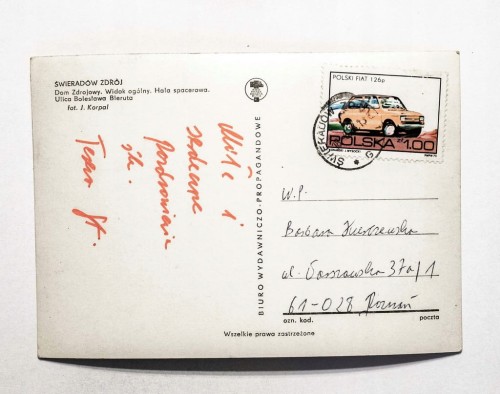 ŚWIERADÓW ZDRÓJ
Dom Zdrojowy. Widok ogólny. Hala spacerowa.
Ulica Bolesława Bieruta
fot. J. Korpal
Miłe i
serdeczne
Pozdrowienia
BIURO WYDAWNICZO-PROPAGANDOWE
POLSKI FIAT 126p
POLSKA zł 1.00
ŚWIERADÓW
W.P.
Barbara
ul. Warszawska 37a/1
61-028, Poznań
ozn. kod. poczta
Wszelkie prawa zastrzeżone